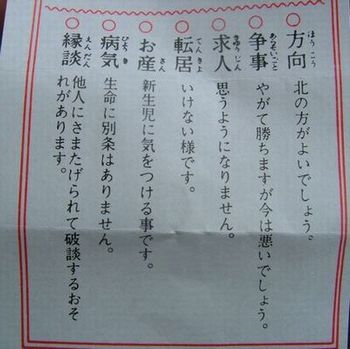 ○方向 北の方がよいでしょう。
○争事 やがて勝ちますが今は悪いでしょう。
○求人 思うようになりません。
○転居 いけない様です。
○お産 新生児に気をつける事です。
○病気 生命に別条はありません。
○縁談 他人にさまたげられて破談するおそ
れがあります。